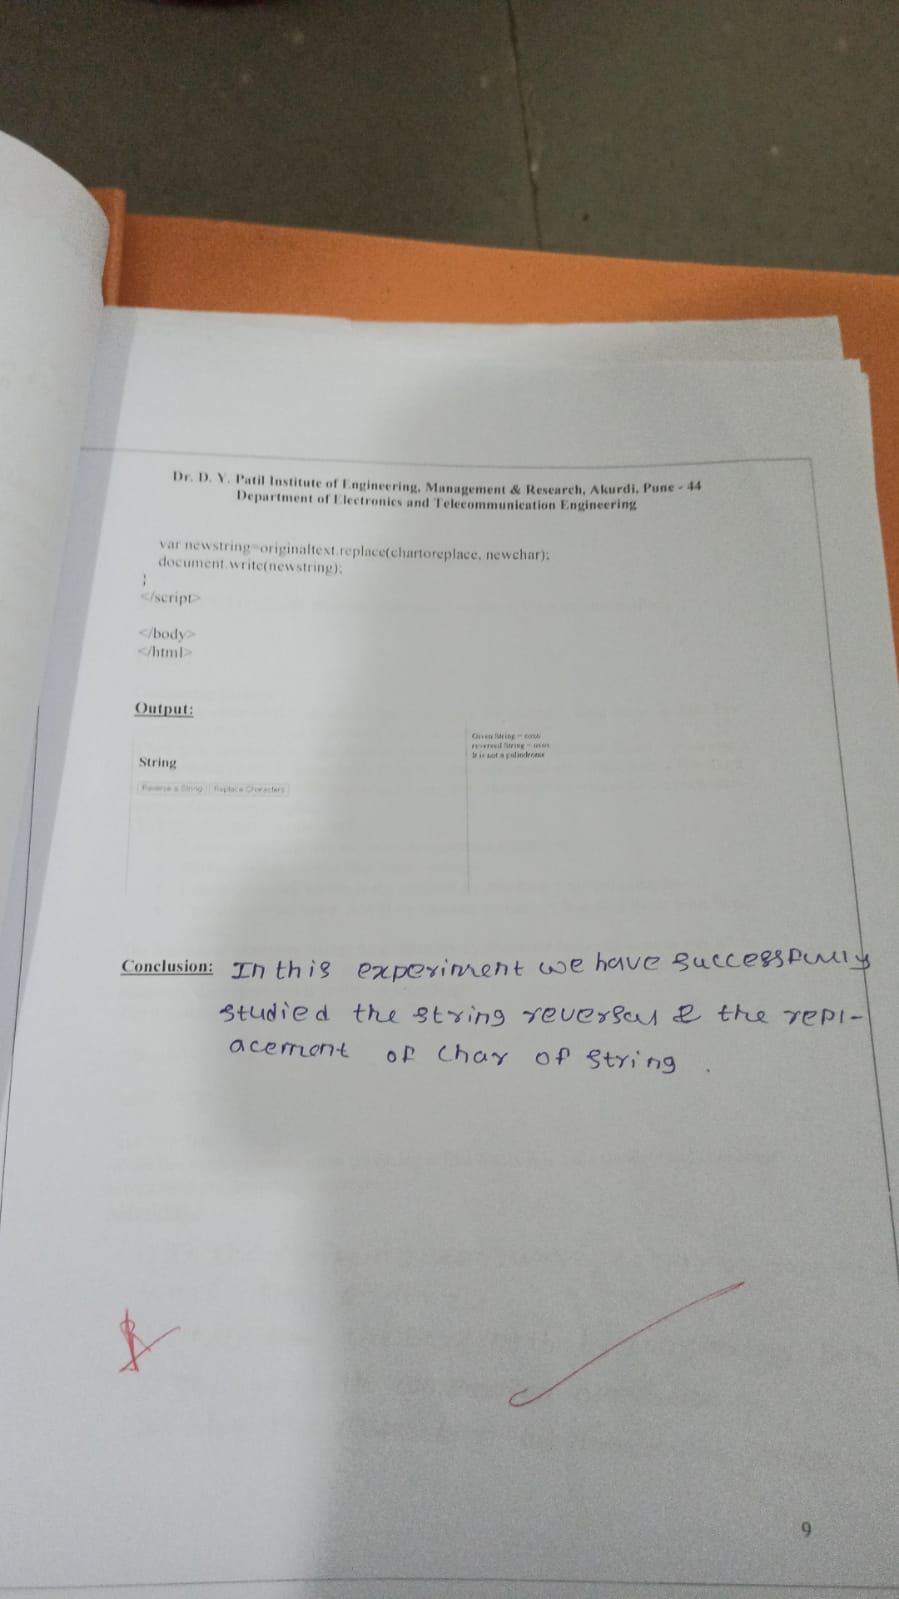 Dr. D. Y. Patil Institute of Engineering, Management & Research, Akurdi, Pune - 44
Department of Electronics and Telecommunication Engineering
var newstring=originaltext.replace(chartoreplace, newchar);
document.write(newstring);
}
</script>
</body>
</html>
Output:
String
Reverse a String Replace Characters
Given String =
reversed String =
It is not a palindrome
Conclusion: In this experiment we have successfully
studied the string reversal & the repl-
acement of char of string .
9